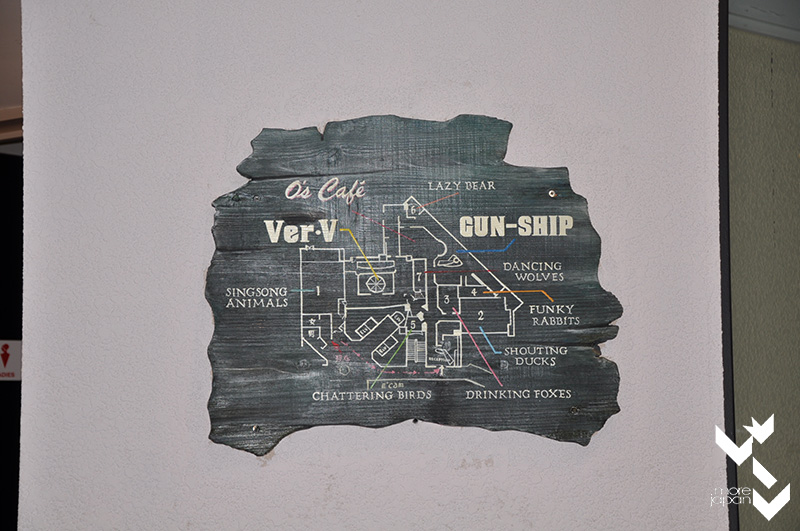 O's Café
LAZY BEAR
6
Ver.V
GUN-SHIP
7
DANCING
WOLVES
SINGSONG
ANIMALS
1
4
3
FUNKY
RABBITS
2
5
SHOUTING
DUCKS
CHATTERING BIRDS
DRINKING FOXES
more
japan